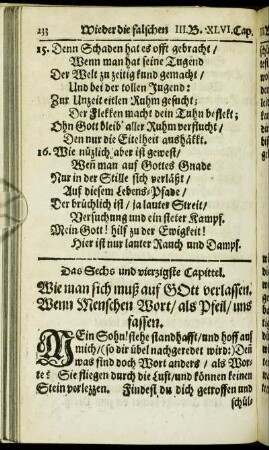 233 Wieder die falschen III.B. XLVI. Cap.
15. Denn Schaden hat es offt gebracht/
Wenn man hat seine Tugend
Der Welt zu zeitig kund gemacht/
Und bei der tollen Jugend:
Zur Unzeit eitlen Ruhm gesucht;
Der Flekken macht dein Tuhn beflekt;
Ohn Gott bleib' aller Ruhm verflucht/
Den nur die Eitelheit aushäkkt.
16. Wie nüzlich aber ist gewest/
Weñ man auf Gottes Gnade
Nur in der Stille sich verläßt/
Auf diesem Lebens-Pfade/
Der brüchlich ist/ ja lauter Streit/
Versuchung und ein steter Kampf.
Mein Gott! hilf zu der Ewigkeit!
Hier ist nur lauter Rauch und Dampf.
Das Sechs und vierzigste Capittel.
Wie man sich muß auf GOtt verlassen.
Wenn Menschen Wort/ als Pfeil/ uns
fassen.
MEin Sohn! stehe standhafft/ und hoff auf
mich/ (so dir übel nachgeredet wird:) Deñ
was sind doch Wort anders/ als Wor-
te? Sie fliegen durch die Lust/ und können keinen
Stein verlezzen. Findest du dich getroffen und
schül-